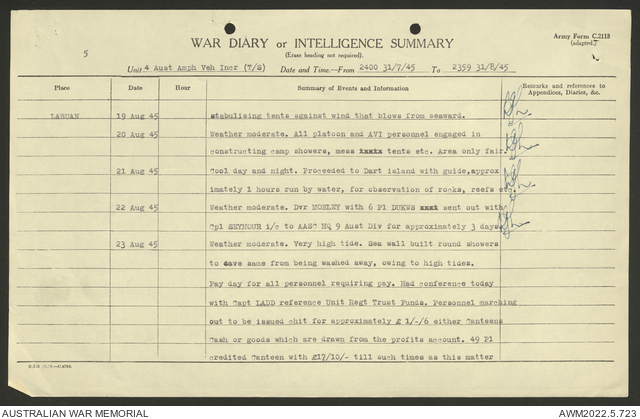 Army Form C.2118
(adapted.)
5
WAR DIARY or INTELLIGENCE SUMMARY
(Erase heading not required).
Unit 4 Aust Amph Veh Incr (T/S) Date and Time.—From 2400 31/7/45 To 2359 31/8/45
Place Date Hour Summary of Events and Information Remarks and references to Appendices, Diaries, &c.
LABUAN. 19 Aug 45 stabulising tents against wind that blows from seaward.
20 Aug 45 Weather moderate. All platoon and AVI personnel engaged in
constructing camp showers, mess tents etc. Area only fair.
21 Aug 45 Cool day and night. Proceeded to Dart island with guide,approx
imately 1 hours run by water, for observation of rocks, reefs etc.
22 Aug 45 Weather moderate. Dvr MOBLEY with 6 Pl DUKWS sent out with
Cpl SEYMOUR i/c to AASC HQ 9 Aust Div for approximately 3 days.
23 Aug 45 Weather moderate. Very high tide. Sea wall built round showers
to save same from being washed away, owing to high tides.
Pay day for all personnel requiring pay. Had conference today
with Capt LADD reference Unit Regt Trust Funds. Personnel marching
out to be issued chit for approximately £ 1/-/6 either Canteens
Cash or goods which are drawn from the profits account. 49 Pl
credited Canteen with £17/10/- till such times as this matter
AUSTRALIAN WAR MEMORIAL AWM2022.5.723